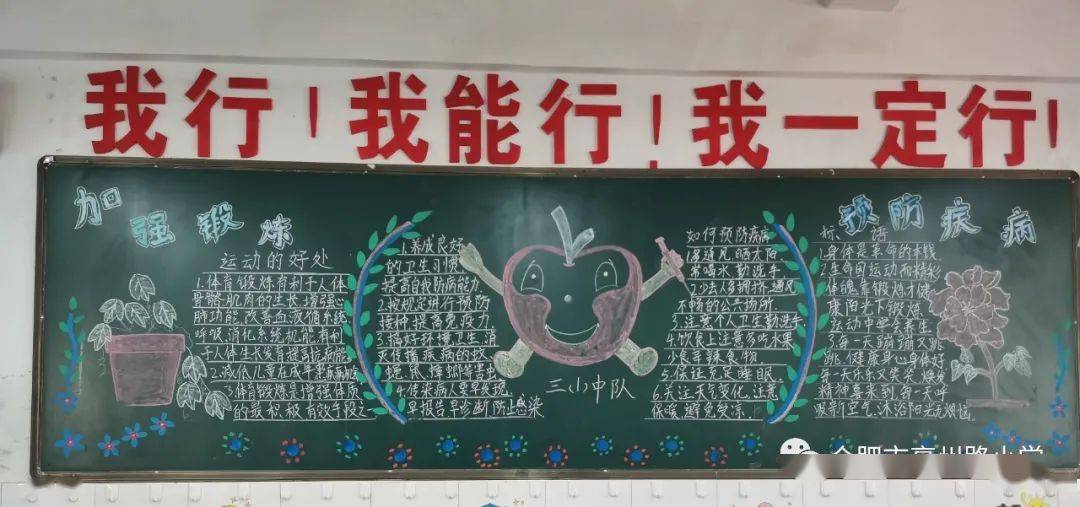 我行！我能行！我一定行！
加强锻炼
运动的好处
1.体育锻炼有利于人体
骨骼、肌肉的生长,增强心
肺功能,改善血液循系统
呼吸,消化系统机能,有利
于人体生长发育提高抗病能
2.减低儿童在成年
3.体育锻炼是增强体质
的最积极有效手段之一
1.养成良好
的卫生习惯
提高自我防病能力
2.按规定进行预防
接种提高免疫力
3.搞好环境卫生,消
灭传播疾病的蚊
蝇、鼠、蟑螂等害虫
4.传染病人要早发现
早报告早诊断防止感染
三(小)中队
如何预防疾病
1.多通风晒太阳
常喝水勤洗手
2.少去人多拥挤,通风
不畅的公共场所
3.注意个人卫生勤洗手
4.饮食上注意多喝水果
少食辛辣食物
5.保证充足睡眠
6.关注天气变化,注意
保暖,避免受凉
预防疾病
标语
1.身体是革命的本钱
2.生命因运动而精彩
体魄靠锻炼才健
康阳光下锻炼
运动中要
3.每一天蹦蹦又跳
跳,健康身心身体好
每一天你又笑笑,焕发
精神喜来到,每一天呼
吸新空气,沐浴阳光无烦恼
合肥市亳州路小学